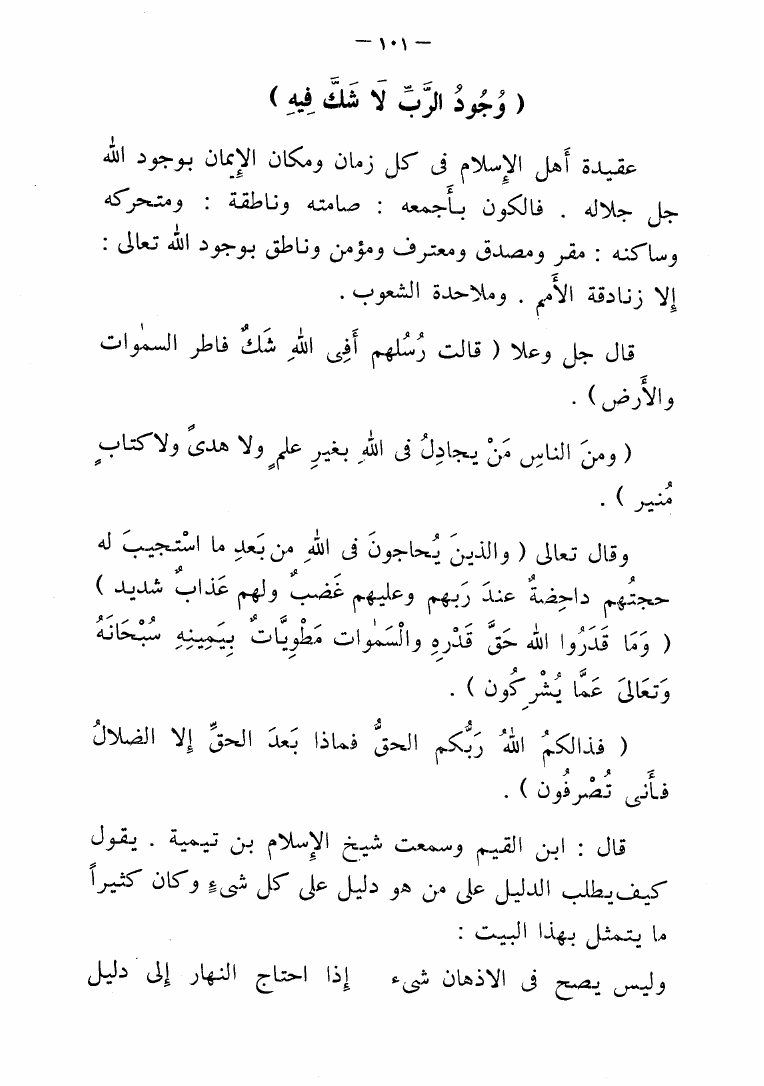 — ١٠١ —
( وُجُودُ الرَّبِّ لَا شَكَّ فِيهِ )
عقيدة أَهل الإِسلام فى كل زمان ومكان الإِيمان بوجود الله
جل جلاله . فالكون بأَجمعه : صامته وناطقة : ومتحركه
وساكنه : مقر ومصدق ومعترف ومؤمن وناطق بوجود الله تعالى :
إِلا زنادقة الأَمم . وملاحدة الشعوب .
قال جل وعلا ( قالت رُسُلهم أَفِى اللهِ شَكٌ فاطر السمٰوات
والأَرض ) .
( ومنَ الناسِ مَنْ يجادِلُ فى اللهِ بغيرِ علمٍ ولا هدىً ولاكتابٍ
مُنير ) .
وقال تعالى ( والذينَ يُحاجونَ فى اللهِ من بَعدِ ما اسْتجيبَ له
حجتُهم داحِضةٌ عندَ رَبهم وعليهم غَضبٌ ولهم عَذابٌ شديد )
( وَمَا قَدَرُوا الله حَقَّ قَدْرِهِ والْسَمٰوات مَطْوِيَّاتٌ بِيَمِينِهِ سُبْحَانَهُ
وَتَعَالىَ عَمَّا يُشْرِكُون ) .
( فذالكمُ اللهُ رَبُّكم الحقُّ فماذا بَعدَ الحقِّ إِلا الضلالُ
فأَنى تُصْرفُون ) .
قال : ابن القيم وسمعت شيخ الإِسلام بن تيمية . يقول
كيف يطلب الدليل على من هو دليل على كل شىءٍ وكان كثيراً
ما يتمثل بهذا البيت :
وليس يصح فى الاذهان شىء إِذا احتاج النهار إِلى دليل